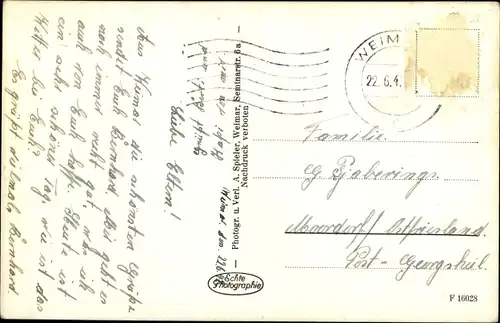 Weimar, den 22.6.4
Liebe Eltern!
Aus Weimar die schönsten Grüße
sendet Euch Bernhard. Mir geht es
noch immer recht gut, was ich
auch von Euch hoffe. Heute ist
ein sehr schöner Tag, wie ist das
Wetter bei Euch?
Es grüßt vielmals Bernhard
Photogr. u. Verl. A. Spieler, Weimar, Seminarstr. 6a
Nachdruck verboten
Echte
Photographie
WEIM
22.6.4
Familie
G. Gaberings
Moordorf/Ostfriesland
Post-Georgsheil.
F 16028